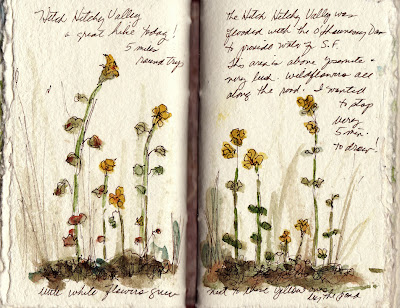 Hetch Hetchy Valley
a great hike today!
5 miles
round trip
little white flowers grew
The Hetch Hetchy Valley was
flooded with the O'Shaunessy Dam
to provide water for S.F.
This area is above Yosemite &
very lush. wildflowers all
along the road. I wanted
to stop
every
5 min.
to draw!
next to these yellow ones
by the pond